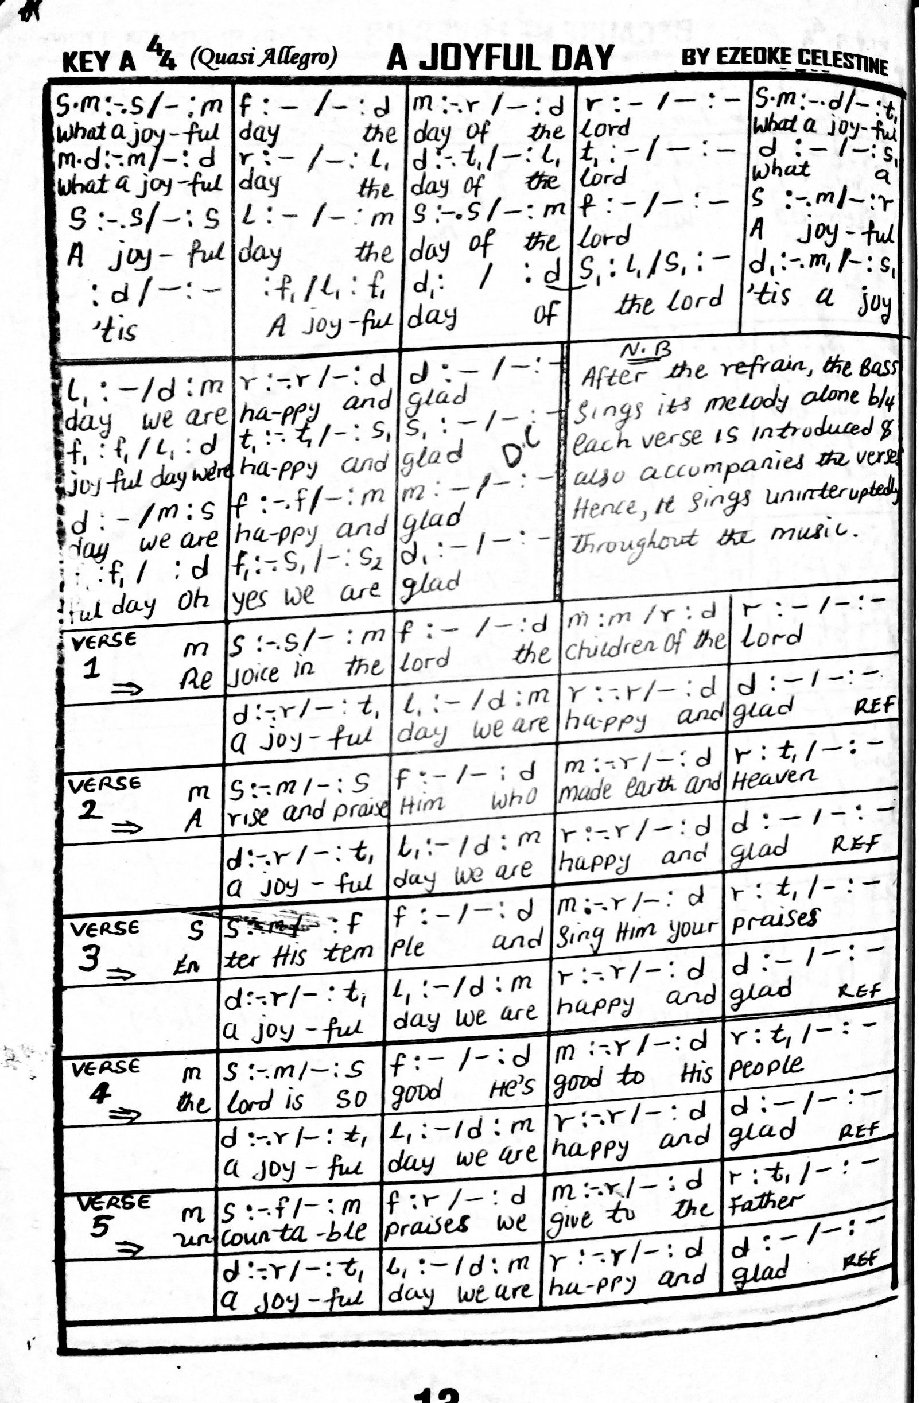 KEY A 4/4 (Quasi Allegro) A JOYFUL DAY BY EZEOKE CELESTINE
S.m:-.S/-:m | f:-/-:d | m:-.r/-:d | r:-/-:- | S.m:-.d/-:t,
What a joy-ful | day the | day of the | lord | What a joy-ful
m.d:-.m/-:d | r:-/-:L, | d:-.t,/-:L, | t,:-/-:- | d:-/-:S,
What a joy-ful | day the | day of the | lord | What a
S:-.S/-:S | L:-/-:m | S:-.S/-:m | f:-/-:- | S:-.m/-:r
A joy-ful | day the | day of the | lord | A joy-ful
:d/-:- | :f,/L,:f, | d,: / :d | S,:L,/S,:- | d,:-.m,/-:S,
'tis | A joy-ful | day of | the lord | 'tis a joy
L,:-/d:m | r:-.r/-:d | d:-/-:-
day we are | ha-ppy and | glad
f,:f,/L,:d | t,:-.t,/-:S, | S,:-/-:-
joy-ful day were | ha-ppy and | glad D.C
d:-/m:S | f:-.f/-:m | m:-/-:-
day we are | ha-ppy and | glad
:f,/ :d | f,:-.S,/-:S2 | d,:-/-:-
ful day Oh | yes we are | glad
N.B
After the refrain, the Bass
Sings its melody alone b/4
each verse is introduced &
also accompanies the verses
Hence, it sings uninteruptedly
throughout the music.
VERSE 1 ⇒ m | S:-.S/-:m | f:-/-:d | m:m/r:d | r:-/-:-
Re | joice in the | lord the | children of the | lord
d:-.r/-:t, | L,:-/d:m | r:-.r/-:d | d:-/-:-
a joy-ful | day we are | happy and | glad REF
VERSE 2 ⇒ m | S:-.m/-:S | f:-/-:d | m:-.r/-:d | r:t,/-:-
A | rise and praise | Him who | made Earth and | Heaven
d:-.r/-:t, | L,:-/d:m | r:-.r/-:d | d:-/-:-
a joy-ful | day we are | happy and | glad REF
VERSE 3 ⇒ S | S:-.m/-:f | f:-/-:d | m:-.r/-:d | r:t,/-:-
En | ter His tem | ple and | Sing Him your | praises
d:-.r/-:t, | L,:-/d:m | r:-.r/-:d | d:-/-:-
a joy-ful | day we are | happy and | glad REF
VERSE 4 ⇒ m | S:-.m/-:S | f:-/-:d | m:-.r/-:d | r:t,/-:-
the | lord is so | good He's | good to His | people
d:-.r/-:t, | L,:-/d:m | r:-.r/-:d | d:-/-:-
a joy-ful | day we are | happy and | glad REF
VERSE 5 ⇒ m | S:-.f/-:m | f:r/-:d | m:-.r/-:d | r:t,/-:-
un | counta-ble | praises we | give to the | Father
d:-.r/-:t, | L,:-/d:m | r:-.r/-:d | d:-/-:-
a joy-ful | day we are | ha-ppy and | glad REF